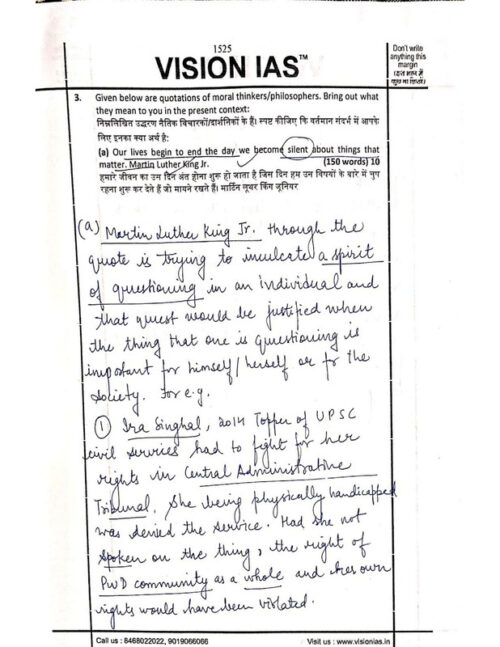 1525
VISION IAS™
Don't write
anything this
margin
(इस भाग में
कुछ ना लिखें)
3. Given below are quotations of moral thinkers/philosophers. Bring out what
they mean to you in the present context:
निम्नलिखित उद्धरण नैतिक विचारकों/दार्शनिकों के हैं। स्पष्ट कीजिए कि वर्तमान संदर्भ में आपके
लिए इनका क्या अर्थ है:
(a) Our lives begin to end the day we become silent about things that
matter. Martin Luther King Jr. (150 words) 10
हमारे जीवन का उस दिन अंत होना शुरू हो जाता है जिस दिन हम उन विषयों के बारे में चुप
रहना शुरू कर देते हैं जो मायने रखते हैं। मार्टिन लूथर किंग जूनियर
(a) Martin Luther King Jr. through the
quote is trying to inculcate a spirit
of questioning in an individual and
that quest would be justified when
the thing that one is questioning is
important for himself/herself or for the
society. For e.g.
① Ira Singhal, 2014 Topper of UPSC
civil services had to fight for her
rights in Central Administrative
Tribunal. She being physically handicapped
was denied the service. Had she not
spoken on the thing, the right of
PwD community as a whole and her own
rights would have been violated.
Call us : 8468022022, 9019066066 Visit us : www.visionias.in